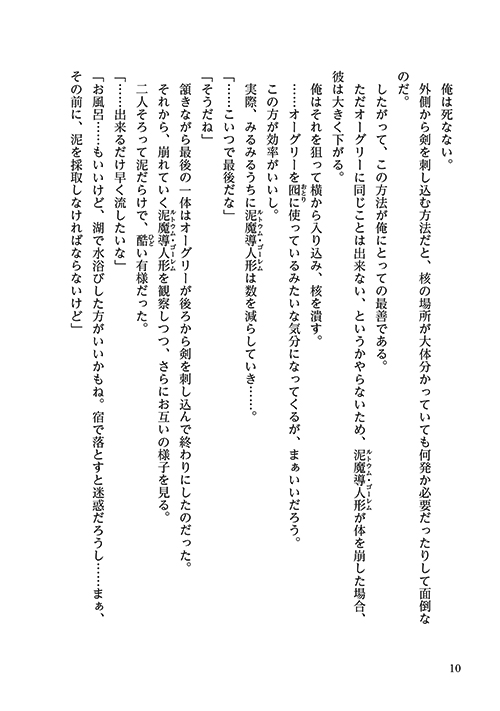 俺は死なない。
外側から剣を刺し込む方法だと、核の場所が大体分かっていても何発か必要だったりして面倒な
のだ。
したがって、この方法が俺にとっての最善である。
ただオーグリーに同じことは出来ない、というかやらないため、泥魔導人形ルトゥム・ゴーレムが体を崩した場合、
彼は大きく下がる。
俺はそれを狙って横から入り込み、核を潰す。
……オーグリーを囮おとりに使っているみたいな気分になってくるが、まぁいいだろう。
この方が効率がいいし。
実際、みるみるうちに泥魔導人形ルトゥム・ゴーレムは数を減らしていき……。
「……こいつで最後だな」
「そうだね」
頷きながら最後の一体はオーグリーが後ろから剣を刺し込んで終わりにしたのだった。
それから、崩れていく泥魔導人形ルトゥム・ゴーレムを観察しつつ、さらにお互いの様子を見る。
二人そろって泥だらけで、酷ひどい有様だった。
「……出来るだけ早く流したいな」
「お風呂……もいいけど、湖で水浴びした方がいいかもね。宿で落とすと迷惑だろうし……まぁ、
その前に、泥を採取しなければならないけど」
10